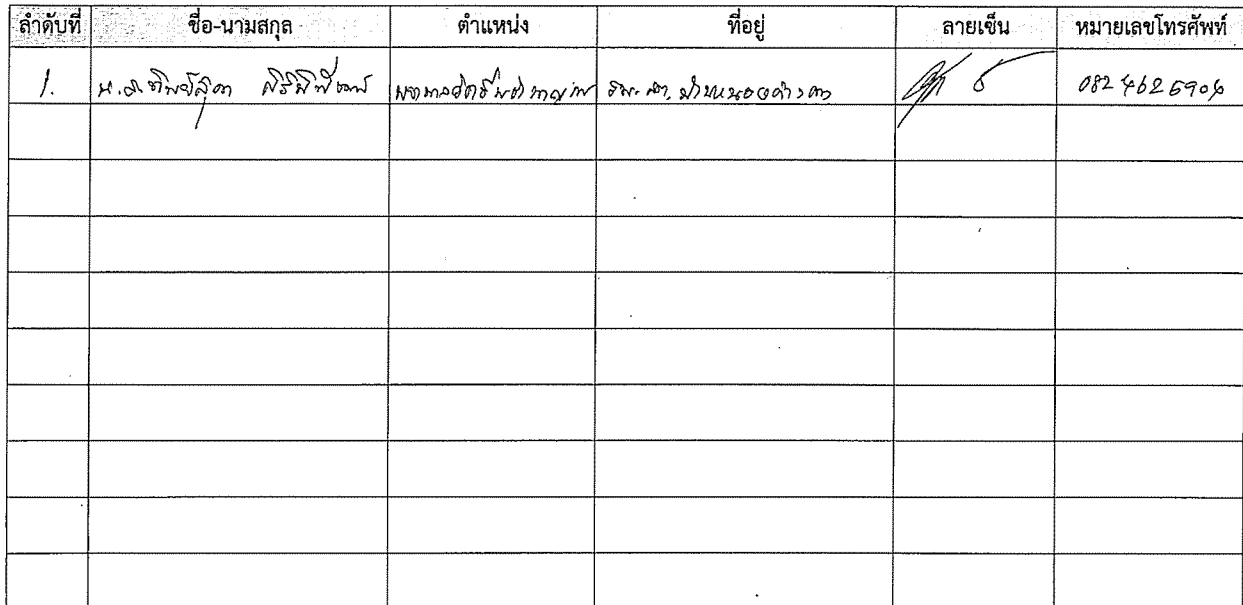 ลำดับที่ ชื่อ-นามสกุล ตำแหน่ง ที่อยู่ ลายเซ็น หมายเลขโทรศัพท์
1. น.ส.ทิพย์สุดา รพ.สต. บ้านหนอง 082 4626904